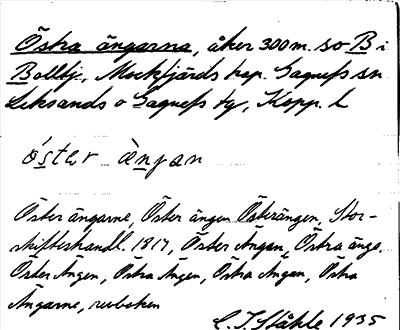 Östra ängarna, åker 300 m. so B i
Bolltj., Mockfjärds kap. Gagnefs sn
Leksands o Gagnefs tg, Kopp. l
ö́ster ä̀njan
Öster ängarne, Öster ängen Österängen, Stor-
skifteshandl. 1817, Öster Ängen, Östra änge,
Öster Ängen, Östra Ängen, Östra Ängen, Östra
Ängarne, revboken
C. I. Ståhle 1935